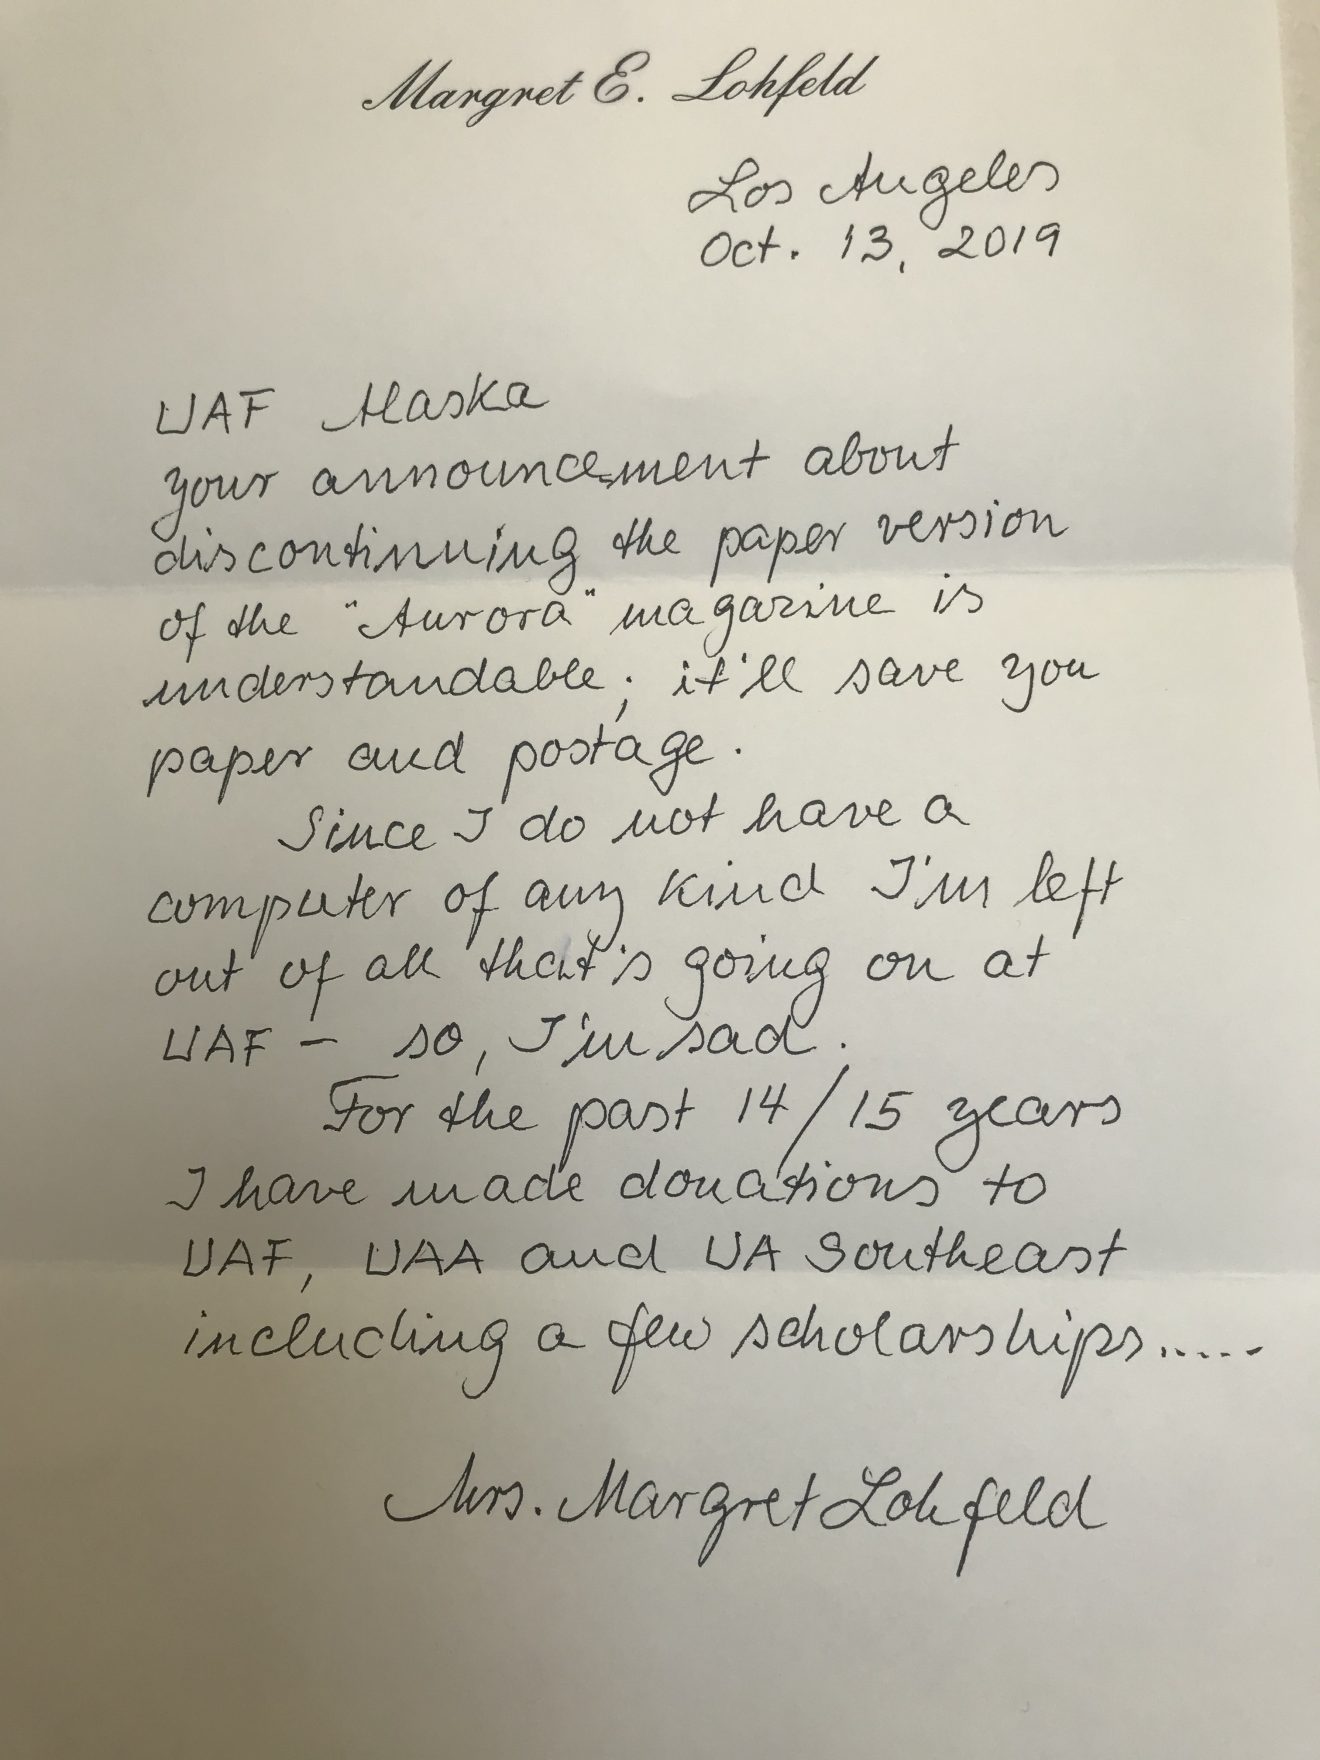 Margret E. Lohfeld
Los Angeles
Oct. 13, 2019
UAF Alaska
your announcement about
discontinuing the paper version
of the "Aurora" magazine is
understandable; it'll save you
paper and postage.
Since I do not have a
computer of any kind I'm left
out of all that's going on at
UAF – so, I'm sad.
For the past 14/15 years
I have made donations to
UAF, UAA and UA Southeast
including a few scholarships.....
Mrs. Margret Lohfeld